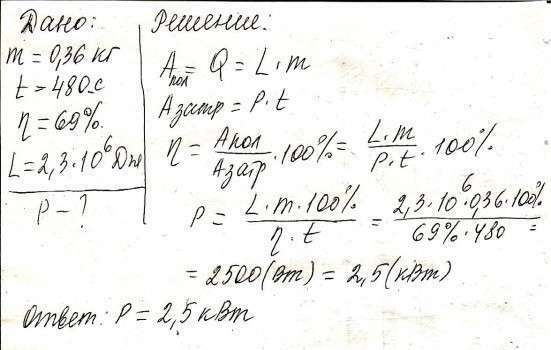 Дано:
m = 0,36 кг
t = 480 с
η = 69%
L = 2,3·10⁶ Дж
P - ?
Решение:
Aпол = Q = L·m
Aзатр = P·t
η = Aпол/Aзатр · 100% = L·m/P·t · 100%
P = L·m·100%/η·t = 2,3·10⁶·0,36·100%/69%·480 =
= 2500 (Вт) = 2,5 (кВт)
Ответ: P = 2,5 кВт